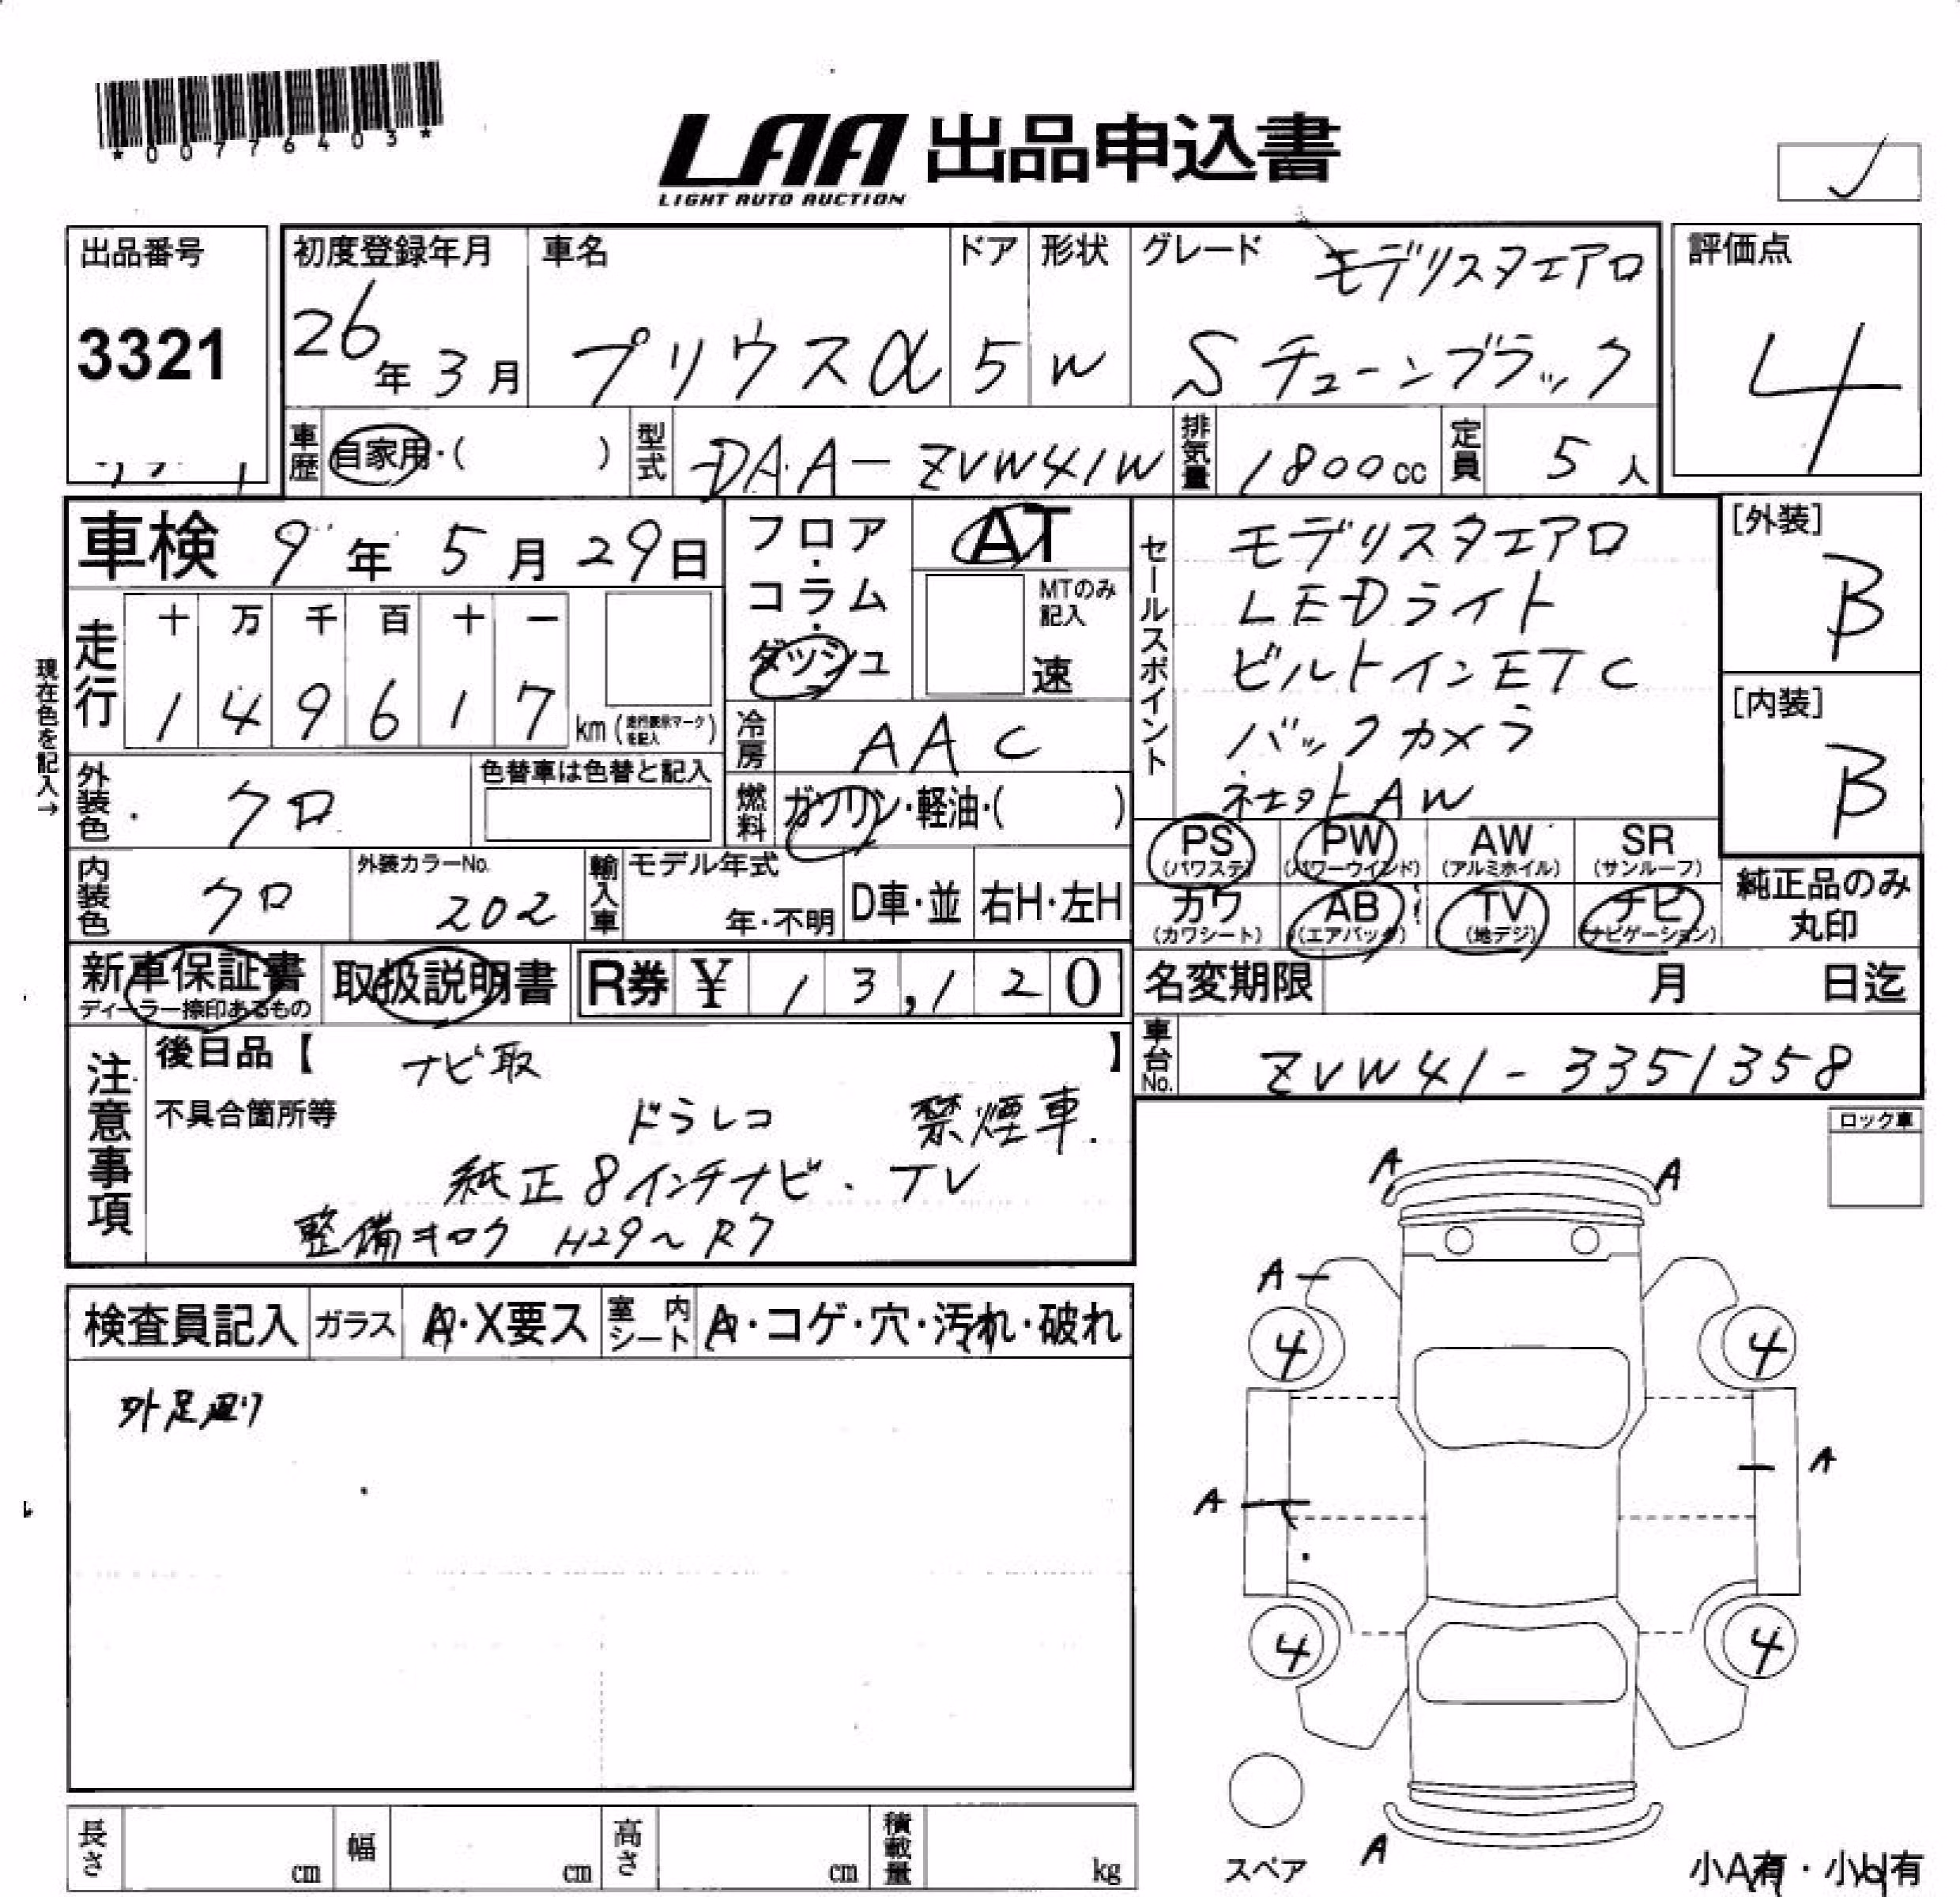 *00776403*
LAA 出品申込書
LIGHT AUTO AUCTION
出品番号
3321
初度登録年月
26年3月
車名
プリウスα
ドア
5
形状
W
グレード
モデリスタエアロ
Sチューンブラック
評価点
4
車歴 自家用・( )
型式 DAA-ZVW41W
排気量 1800cc
定員 5人
車検 9年5月29日
走行
十 万 千 百 十 一
1 4 9 6 1 7 km(走行表示マークを記入)
現在色を記入→
フロア・コラム・ダッシュ
AT
MTのみ記入
速
冷房 AAC
燃料 ガソリン・軽油・( )
セールスポイント
モデリスタエアロ
LEDライト
ビルトインETC
バックカメラ
AW
[外装]
B
[内装]
B
外装色 クロ
色替車は色替と記入
内装色 クロ
外装カラーNo.
202
輸入車
モデル年式
年・不明
D車・並
右H・左H
PS (パワステ)
PW (パワーウインド)
AW (アルミホイル)
SR (サンルーフ)
カワ (カワシート)
AB (エアバック)
TV (地デジ)
ナビ (ナビゲーション)
純正品のみ丸印
新車保証書
ディーラー捺印あるもの
取扱説明書
R券 ¥ 13,120
名変期限 月 日迄
車台No. ZVW41-3351358
注意事項
後日品【 ナビ取 】
不具合箇所等
ドラレコ 禁煙車.
純正8インチナビ・TV
整備キロク H29~R7
ロック車
検査員記入
ガラス A・X要ス
室内シート A・コゲ・穴・汚れ・破れ
A A
A
4 4
A
A
4 4
スペア
A
小A有・小U有
長さ cm
幅 cm
高さ cm
積載量 kg